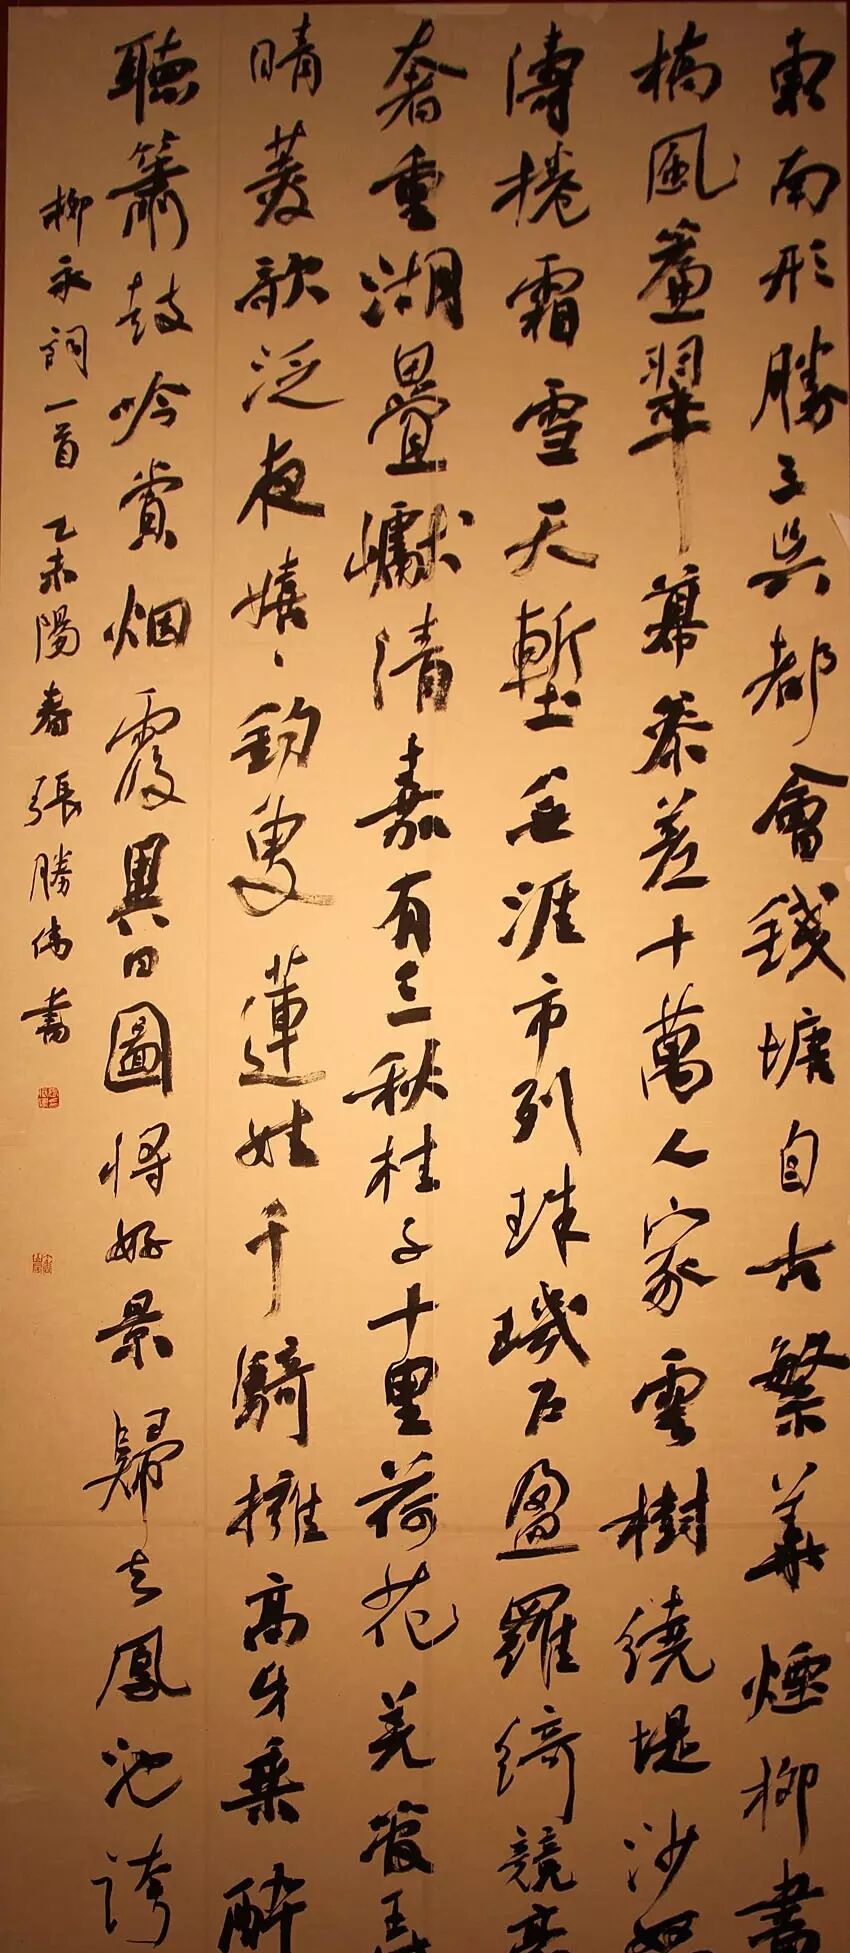 東南形勝三吳都會錢塘自古繁華煙柳畫
橋風簾翠幕參差十萬人家雲樹繞堤沙怒
濤捲霜雪天塹無涯市列珠璣戶盈羅綺競豪
奢重湖疊巘清嘉有三秋桂子十里荷花羌管弄
晴菱歌泛夜嬉嬉釣叟蓮娃千騎擁高牙乘醉
聽簫鼓吟賞烟霞異日圖將好景歸去鳳池誇
柳永詞一首 乙未陽春張勝偉書